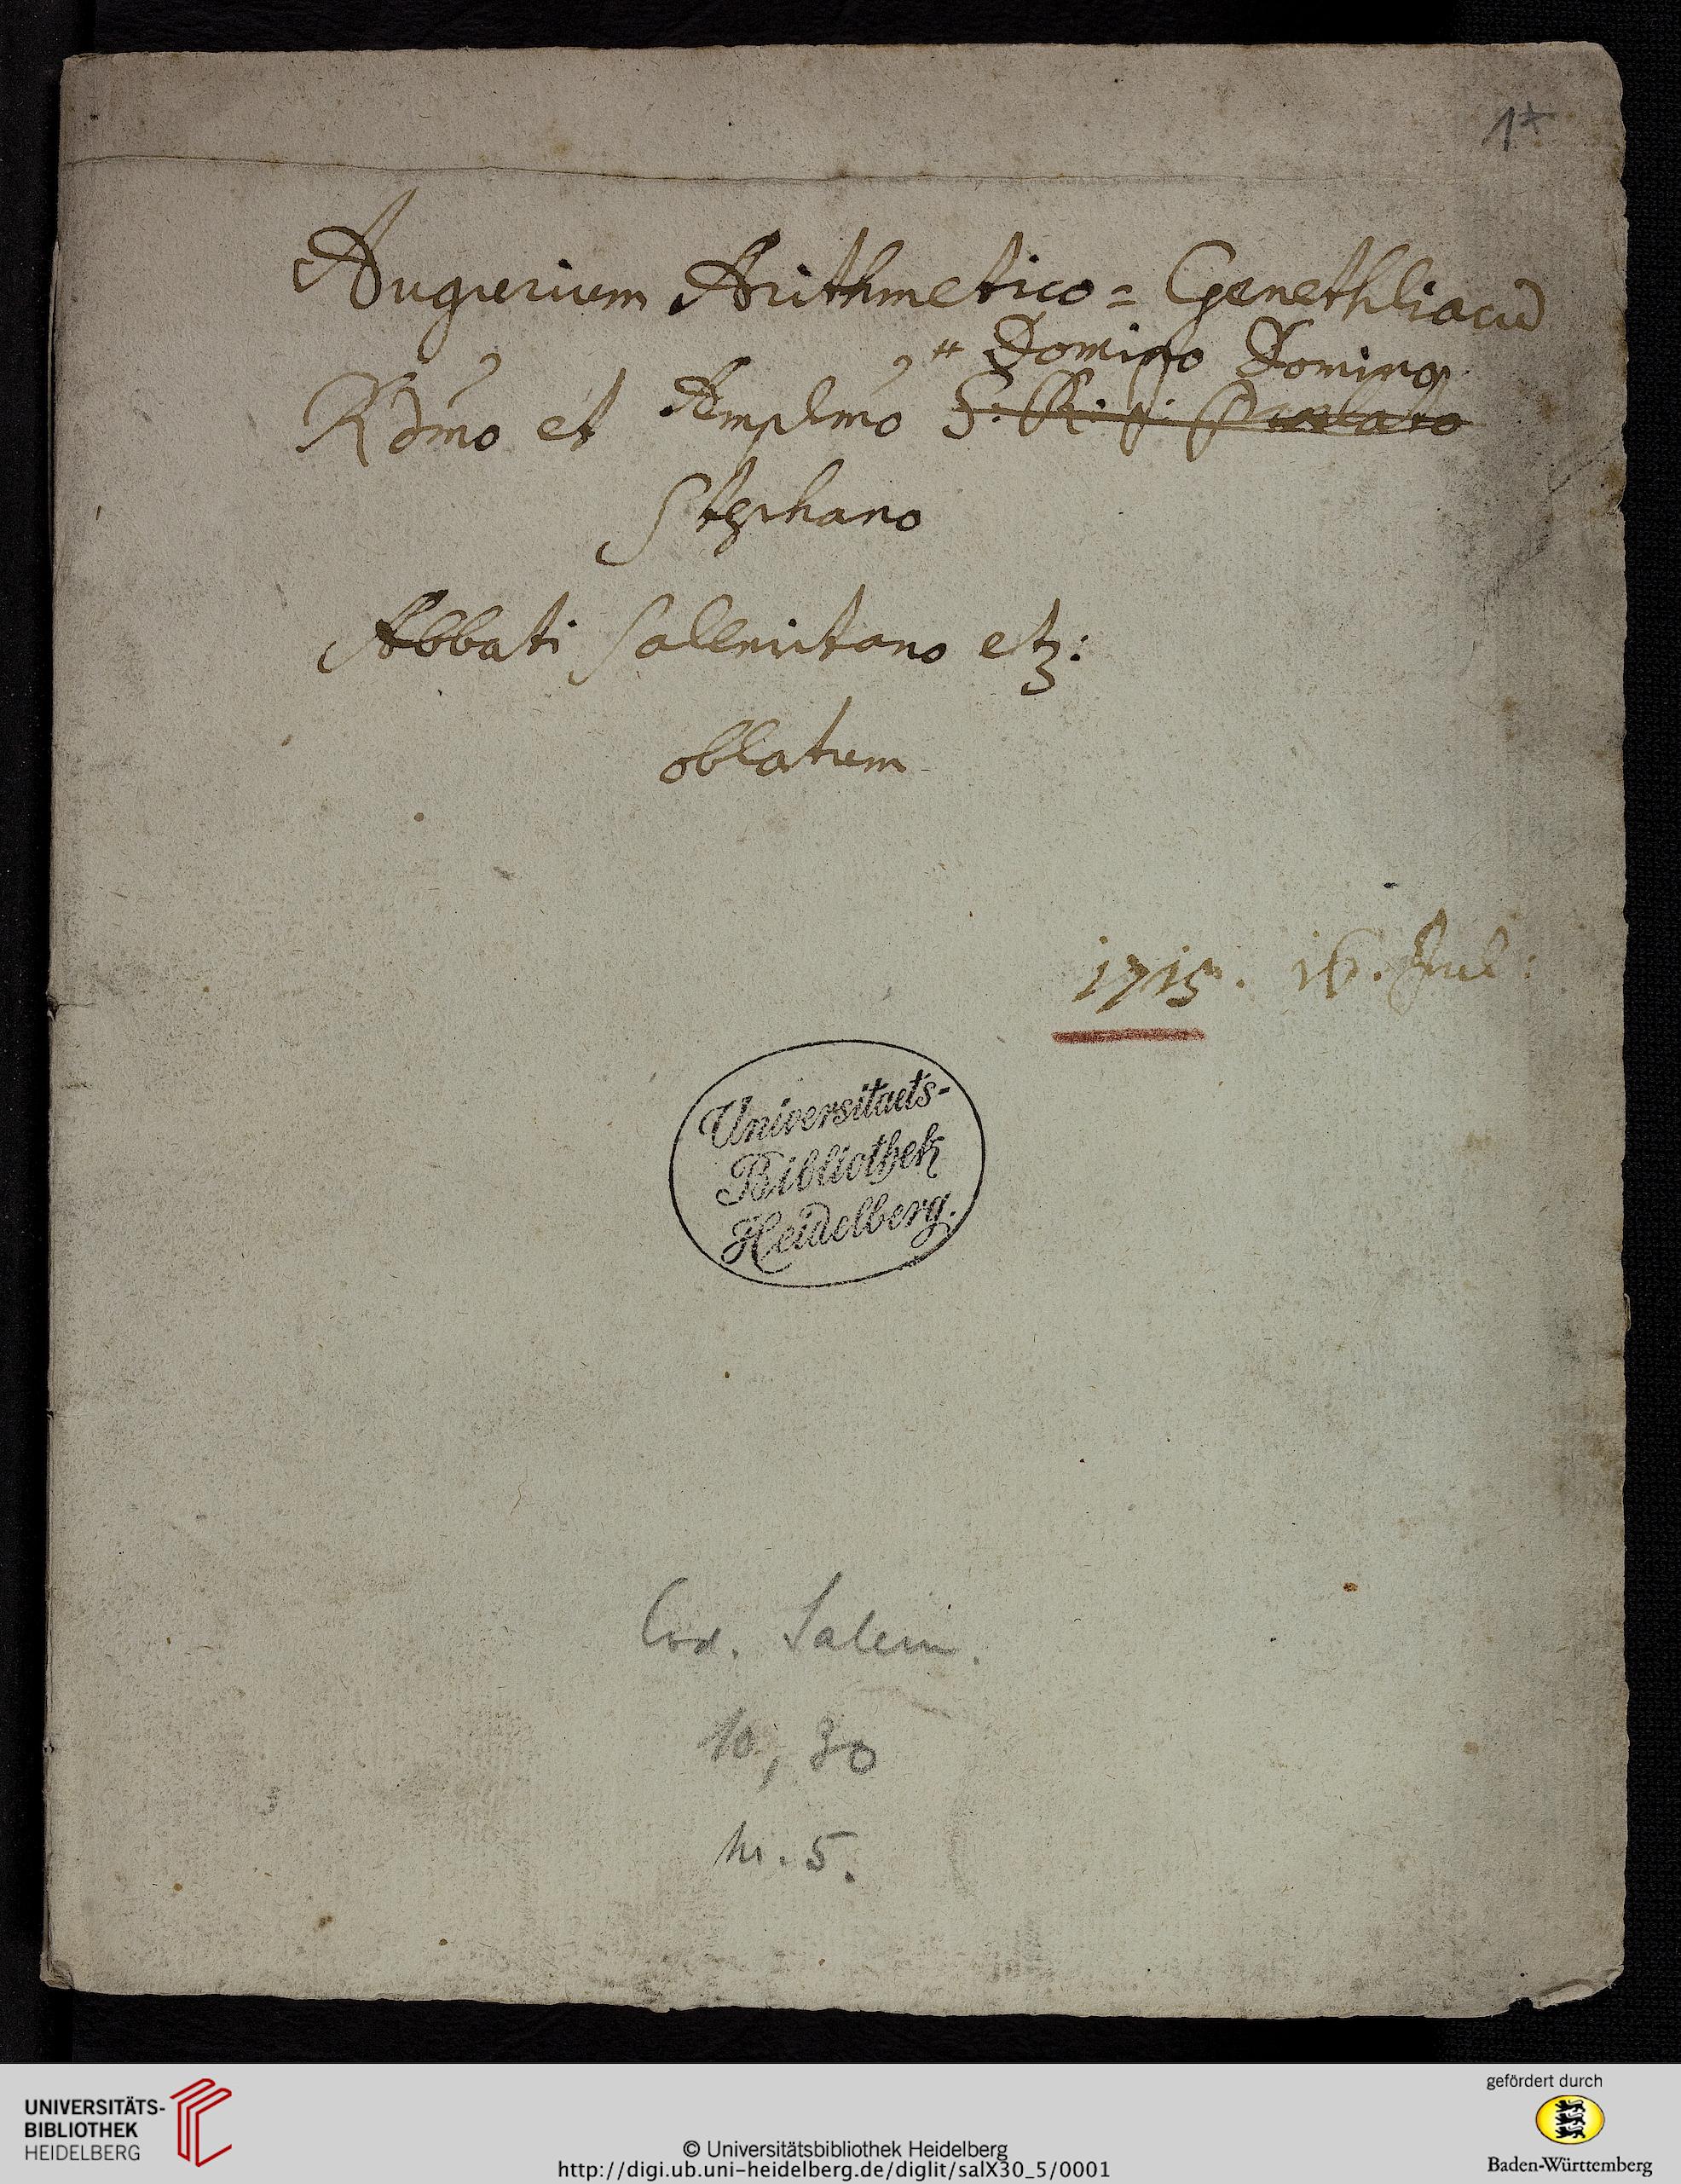 1*
Augurium Arithmetico = Genethliacũ
" Domino Domino
Rdmo et Amplmo S: R: J: Praelato
Stephano
Abbati Salemitano etz:
oblatum
1715. 16. Jul:
Universitaets-
Bibliothek
Heidelberg.
Cod. Salem.
10, 30
nr. 5.
UNIVERSITÄTS-
BIBLIOTHEK
HEIDELBERG
gefördert durch
Baden-Württemberg
© Universitätsbibliothek Heidelberg
http://digi.ub.uni-heidelberg.de/diglit/salX30_5/0001